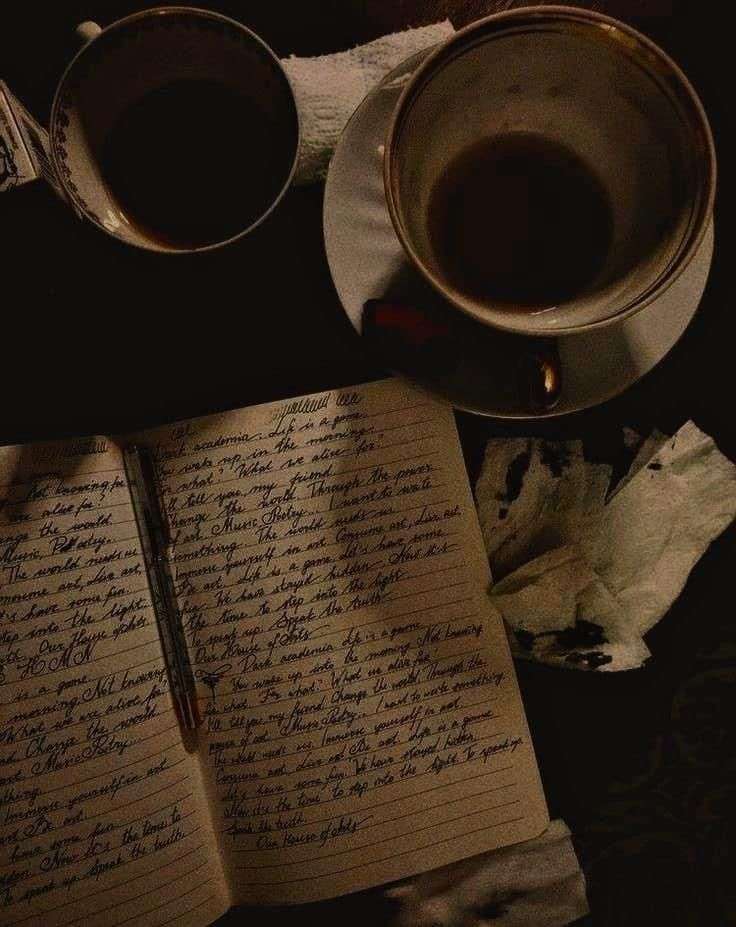 Not knowing for
are alive for?
nge the world.
Music. Poetry.
The world needs us
onsume art, Live art,
's have some fun.
tep into the light.
Our House of Arts.
H M N
is a game.
morning. Not knowing
What we are alive for.
nd Change the world
art. Music Poetry.
thing.
Immerse yourself in art
art Be art.
have some fun.
dden. Now it's the time to
To speak up. Speak the truth.
ark academia. Life is a game.
You wake up in the morning.
what? What we alive for?
I'll tell you, my friend.
Change the world. Through the power
of art. Music Poetry.. I want to write
something. The world needs us.
Immerse yourself in art. Consume art, Live art
Be art. Life is a game. Let's have some
fun. We have stayed hidden. Now it's
the time to step into the light.
To speak up. Speak the truth.
Our House of Arts
Dark academia. Life is a game.
You wake up into the morning. Not knowing
for what. "For what? What we alive for.
I'll tell you, my friend. Change the world. Through the
power of art. Music Poetry... I want to write something
The world needs us. Immerse yourself in art.
Consume art. Live art. Be art. Life is a game.
Let's have some fun. We have stayed hidden.
Now it's the time to step into the light. To speak up.
Speak the truth.
Our House of Arts